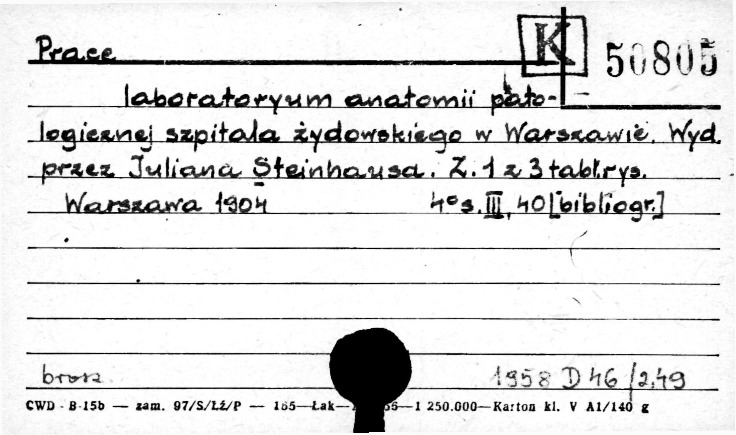 K 50805
Prace
laboratoryum anatomii pato-
logicznej szpitala żydowskiego w Warszawie. Wyd.
przez Juliana Steinhausa. Z. 1 z 3 tabl. rys.
Warszawa 1904 4° s. III, 40 [bibliogr.]
brosz. 1958 D 46/249
CWD - B-15b — zam. 97/S/Łź/P — 165—Łak— 1 250.000—Karton kl. V A1/140 g